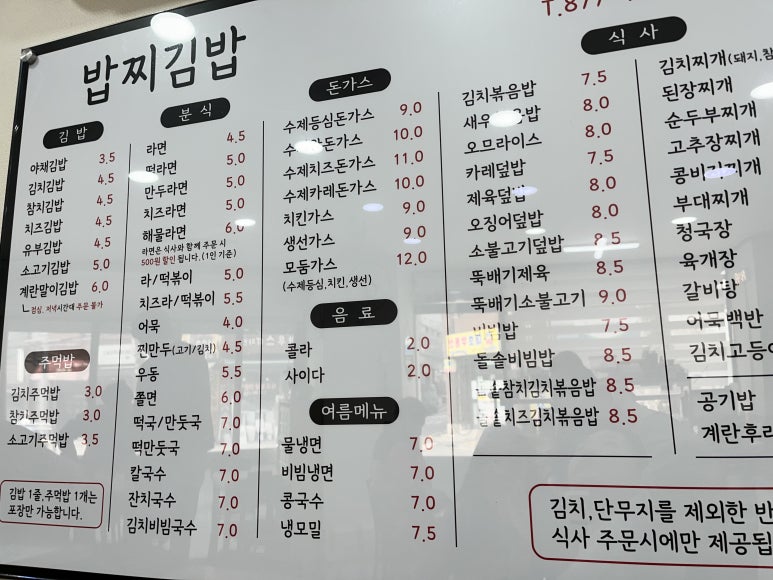 밥찌김밥
T.877
김 밥
야채김밥 3.5
김치김밥 4.5
참치김밥 4.5
치즈김밥 4.5
유부김밥 4.5
소고기김밥 5.0
계란말이김밥 6.0
ㄴ점심, 저녁시간대 주문 불가
주먹밥
김치주먹밥 3.0
참치주먹밥 3.0
소고기주먹밥 3.5
김밥 1줄,주먹밥 1개는
포장만 가능합니다.
분 식
라면 4.5
떡라면 5.0
만두라면 5.0
치즈라면 5.0
해물라면 6.0
라면은 식사와 함께 주문 시
500원 할인 됩니다.(1인 기준)
라/떡볶이 5.0
치즈라/떡볶이 5.5
어묵 4.0
찐만두(고기/김치) 4.5
우동 5.5
쫄면 6.0
떡국/만둣국 7.0
떡만둣국 7.0
칼국수 7.0
잔치국수 7.0
김치비빔국수 7.0
돈가스
수제등심돈가스 9.0
돈가스 10.0
수제치즈돈가스 11.0
수제카레돈가스 10.0
치킨가스 9.0
생선가스 9.0
모둠가스 12.0
(수제등심,치킨,생선)
음 료
콜라 2.0
사이다 2.0
여름메뉴
물냉면 7.0
비빔냉면 7.0
콩국수 7.0
냉모밀 7.5
식 사
김치볶음밥 7.5
새우볶음밥 8.0
오므라이스 8.0
카레덮밥 7.5
제육덮밥 8.0
오징어덮밥 8.0
소불고기덮밥 8.5
뚝배기제육 8.5
뚝배기소불고기 9.0
비빔밥 7.5
돌솥비빔밥 8.5
돌솥참치김치볶음밥 8.5
돌솥치즈김치볶음밥 8.5
김치찌개(돼지,참
된장찌개
순두부찌개
고추장찌개
콩비지찌개
부대찌개
청국장
육개장
갈비탕
어묵백반
김치고등어
공기밥
계란후라
김치,단무지를 제외한 반
식사 주문시에만 제공됩